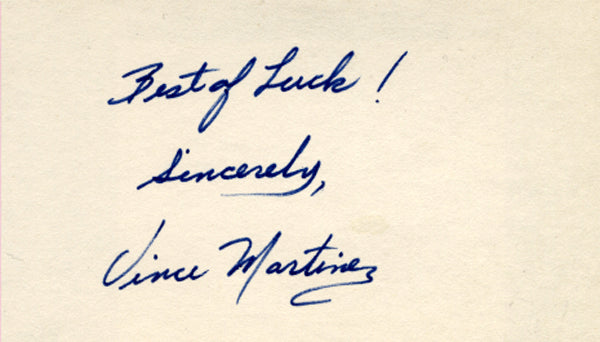 Best of Luck!
Sincerely,
Vince Martinez